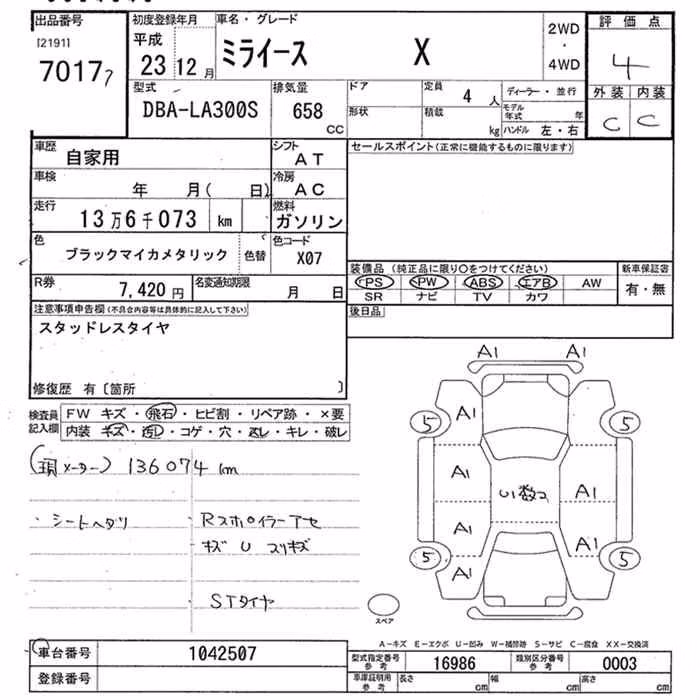 出品番号
[2191]
7017
初度登録年月
平成
23 12月
車名・グレード
ミライース X
2WD
・
4WD
評価点
4
外装 内装
C C
型式
DBA-LA300S
排気量
658
CC
ドア
形状
定員
4 人
積載
kg
ディーラー・並行
モデル年式 年
ハンドル 左・右
車歴
自家用
シフト
AT
車検
年 月( 日)
冷房
AC
走行
13万6千073 km
燃料
ガソリン
色
ブラックマイカメタリック
色替
色コード
X07
R券
7,420円
名変通知期限
月 日
セールスポイント(正常に機能するものに限ります)
装備品 (純正品に限り○をつけてください)
PS PW ABS エアB AW
SR ナビ TV カワ
新車保証書
有・無
後日品
注意事項申告欄(不具合内容等は具体的に記入して下さい)
スタッドレスタイヤ
修復歴 有〔箇所 〕
検査員記入欄
FW キズ・飛石・ヒビ割・リペア跡・×要
内装 キズ・汚レ・コゲ・穴・返レ・キレ・破レ
(現メーター) 136074km
・シートヘタリ
Rスポイラーアセ
キズ U スリキズ
STタイヤ
A1 A1
A1
5 5
A1
A1
A1
A1
A1
5 5
スペア
A-キズ E-エクボ U-凹み W-補修跡 S-サビ C-腐食 XX-交換済
車台番号
1042507
登録番号
型式指定番号
参考
16986
類別区分番号
参考
0003
車庫証明用
参考
長さ cm
幅 cm
高さ cm